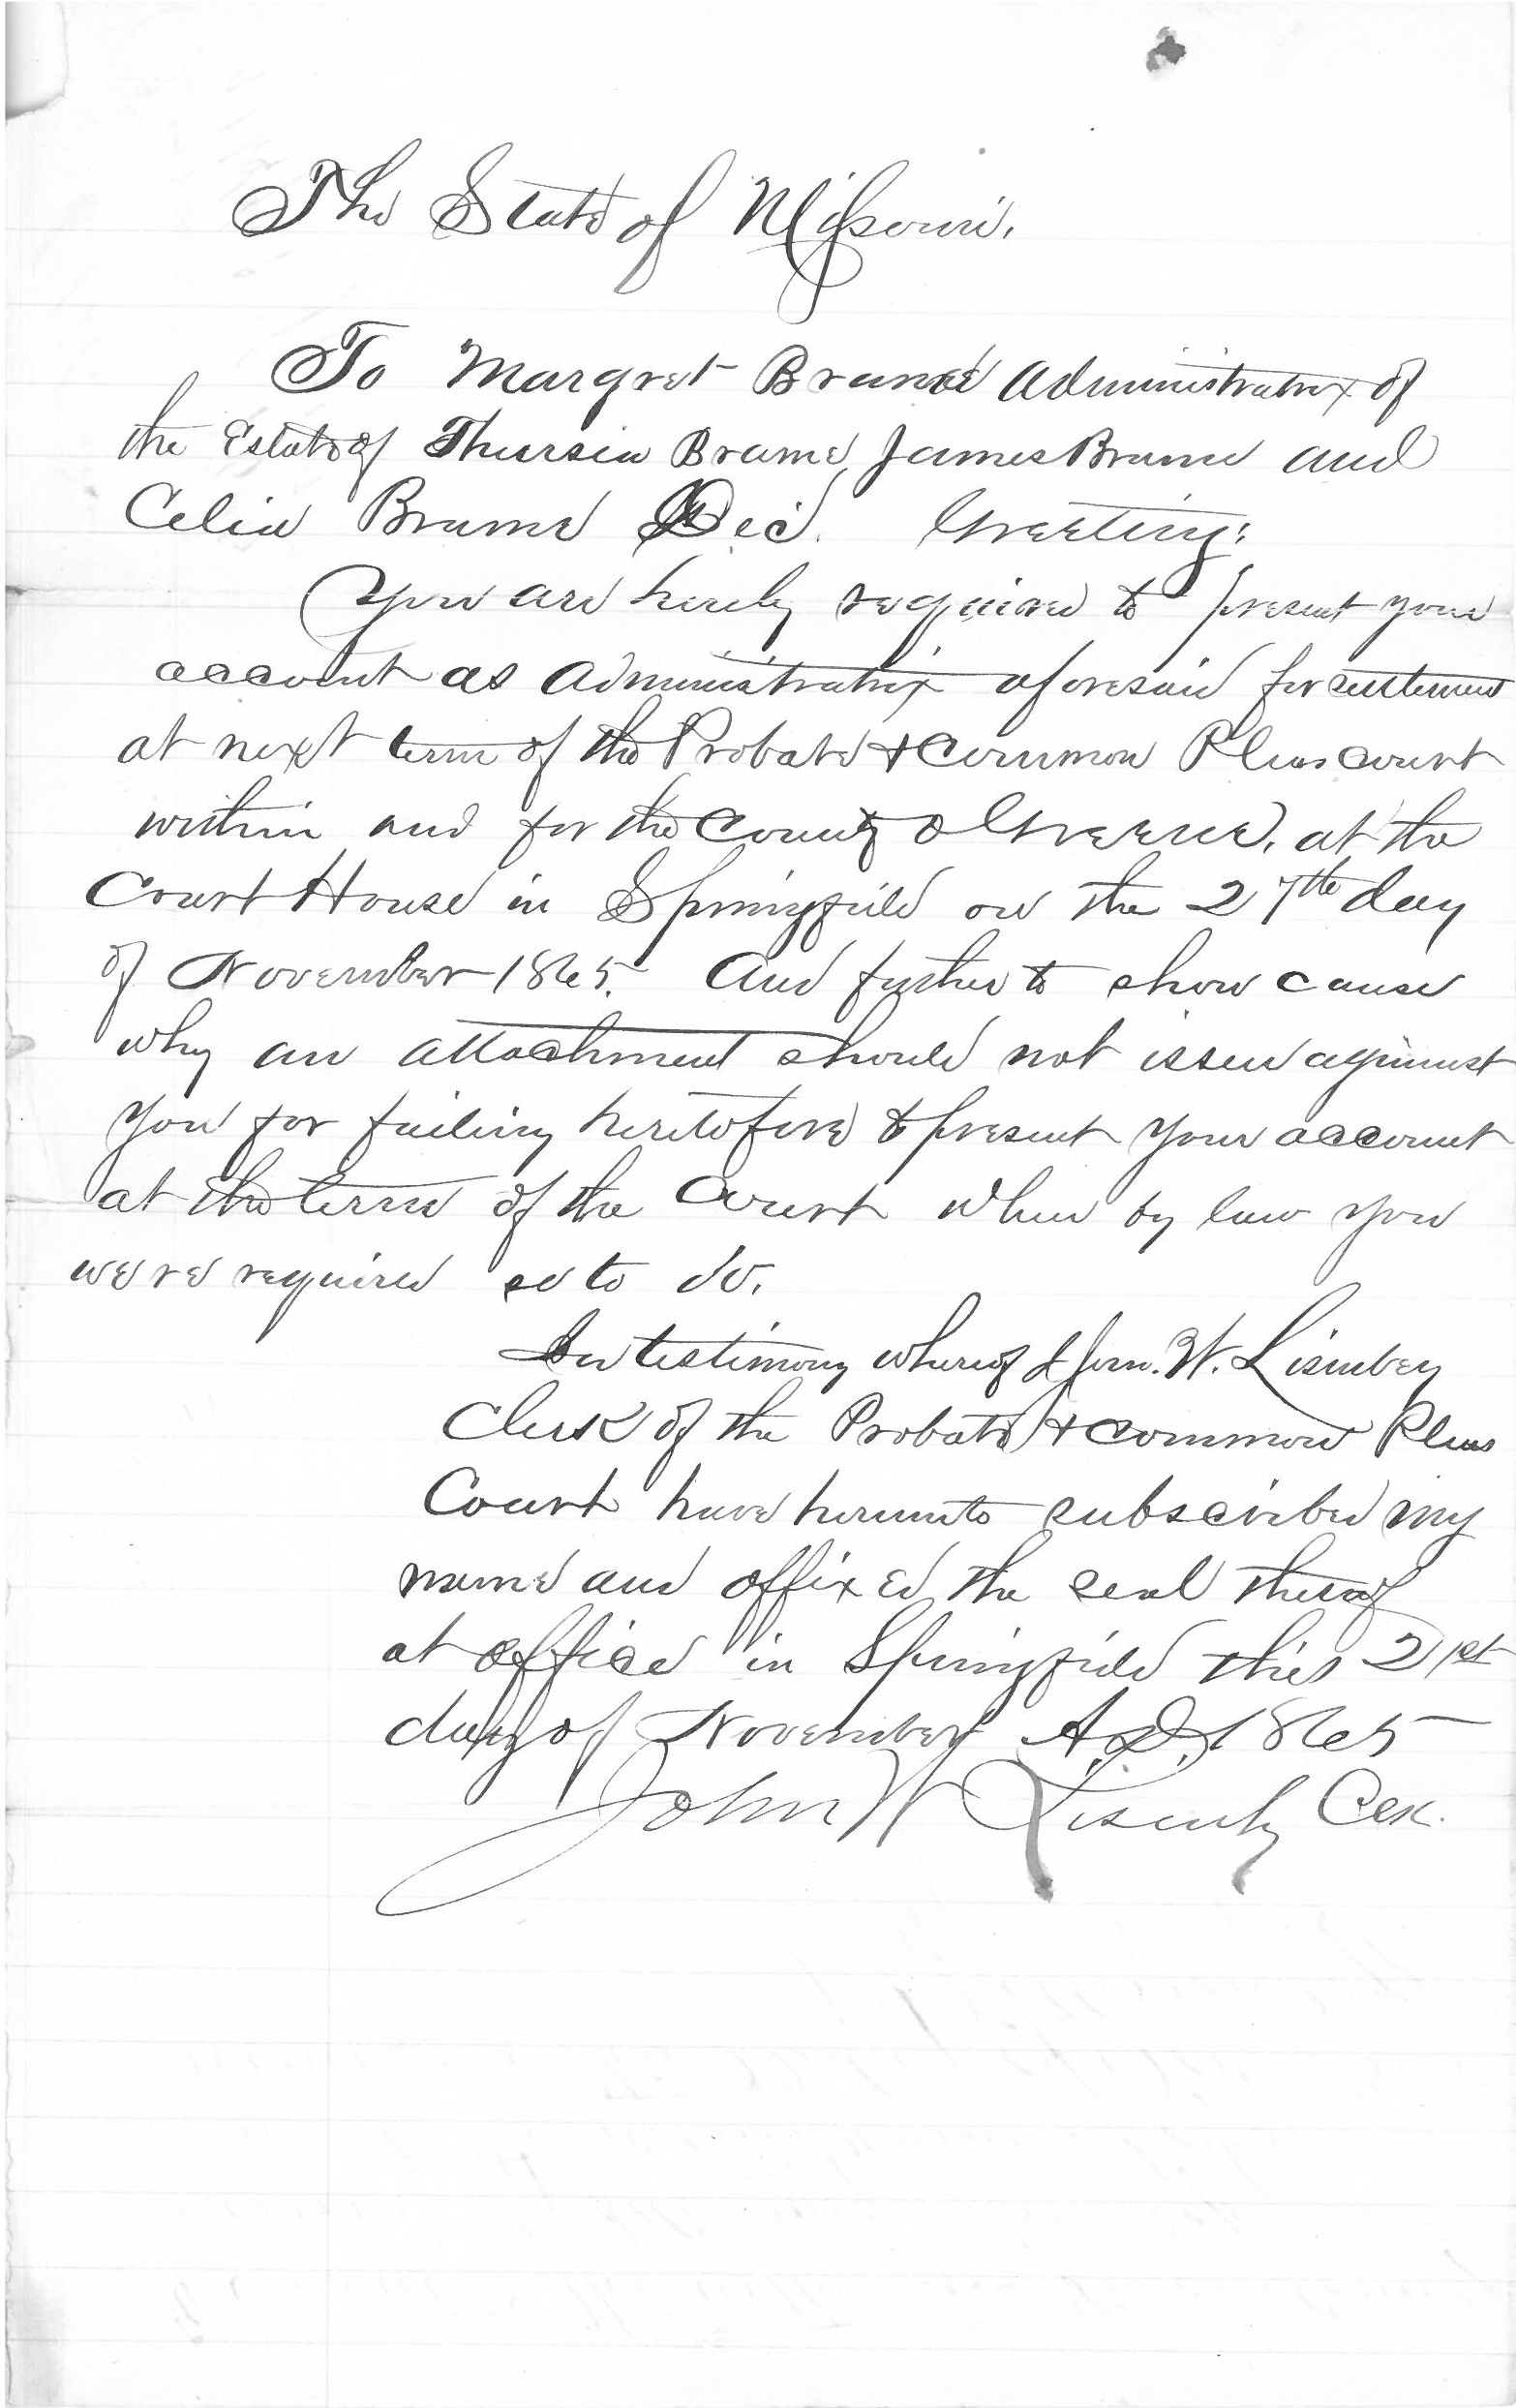 The State of Missouri.
To Margret Brame Administratrix of
the Estate of Thursia Brame, James Brame and
Celia Brame Dec'd. Greeting:
You are hereby required to present your
account as Administratrix aforesaid for settlement
at next term of the Probate & Common Pleas court
within and for the County of Greene, at the
Court House in Springfield on the 27th day
of November 1865. And further to show cause
why an attachment should not issue against
you for failing heretofore to present your account
at the term of the Court when by law you
were required so to do.
In testimony whereof I Jno. W. Lisenbey
Clerk of the Probate & Common Pleas
Court have hereunto subscribed my
name and affixed the seal thereof
at office in Springfield this 21st
day of November A.D. 1865
John W Lisenby Clk.